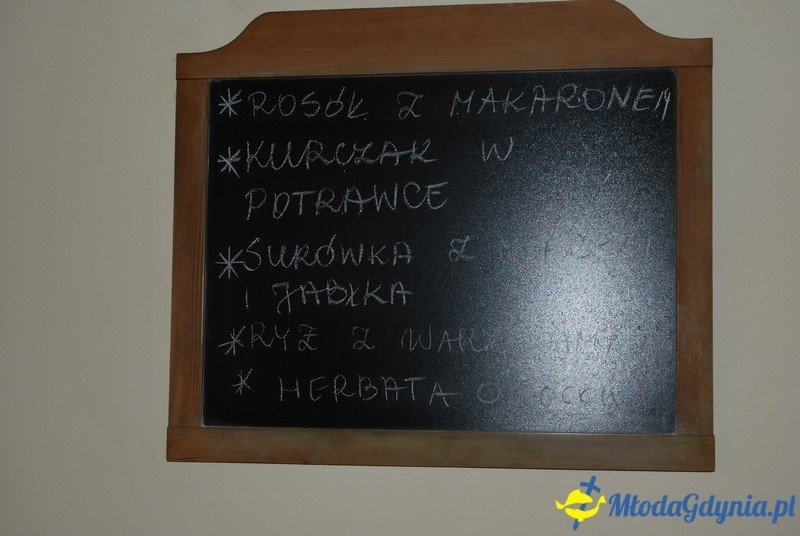 * ROSÓŁ Z MAKARONEM
* KURCZAK W
POTRAWCE
* SURÓWKA Z
I JABŁKA
* RYŻ Z WARZYWAMI
* HERBATA
MłodaGdynia.pl